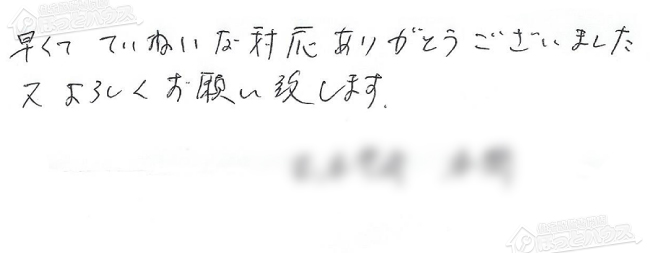 早くて ていねいな対応ありがとうございました
又 よろしくお願い致します.